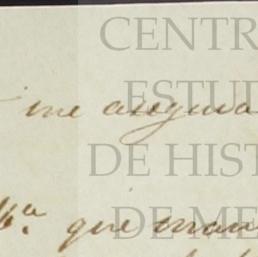 CENTR
ESTUD
me asegura
DE HIST
que man
DE ME